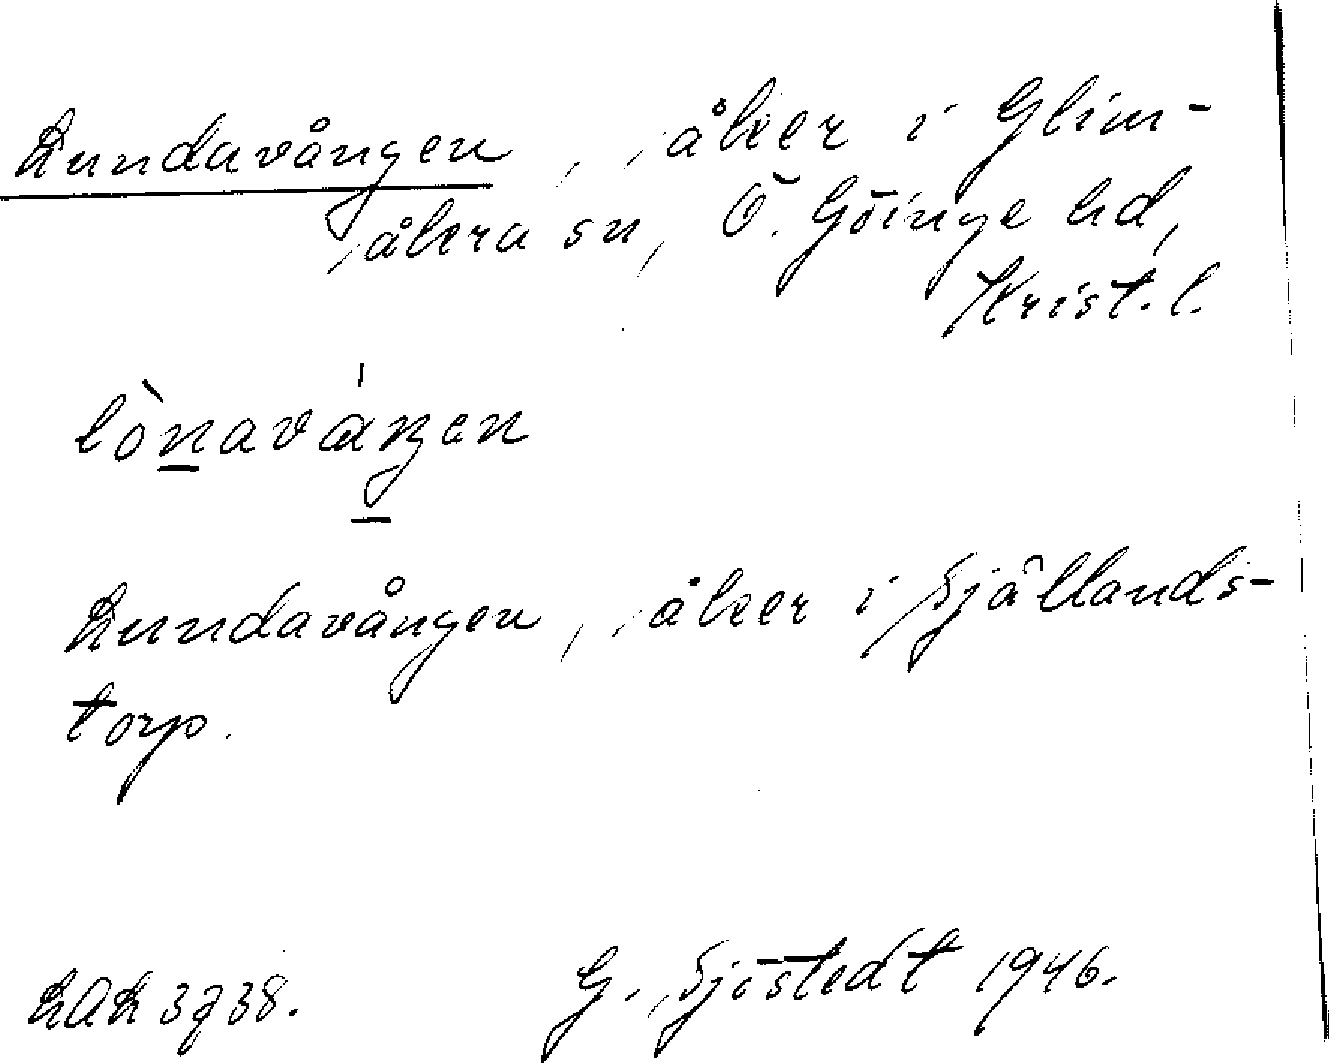 Lundavången, åker i Glim-
åkra sn, Ö. Göinge hd,
Krist. l.
lònaváŋen
Lundavången, åker i Sjöllands-
torp.
LAL 3738.
G. Sjöstedt 1946.